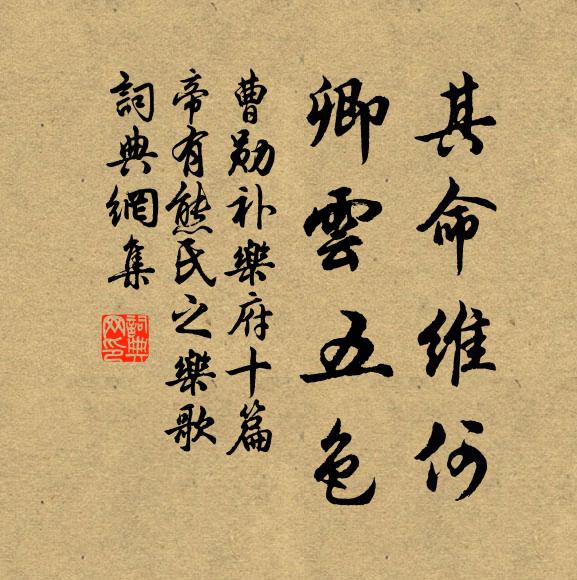 其命維何
卿雲五色
曹勛补樂府十篇
帝有熊氏之樂歌
詞典網集
詞典网印